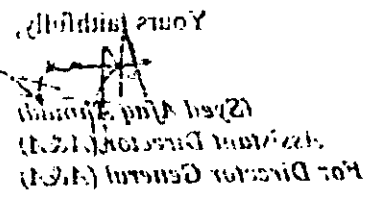 Yours faithfully,
(Syed Afaq
Assistant Director (A&A)
For Director General (A&A)